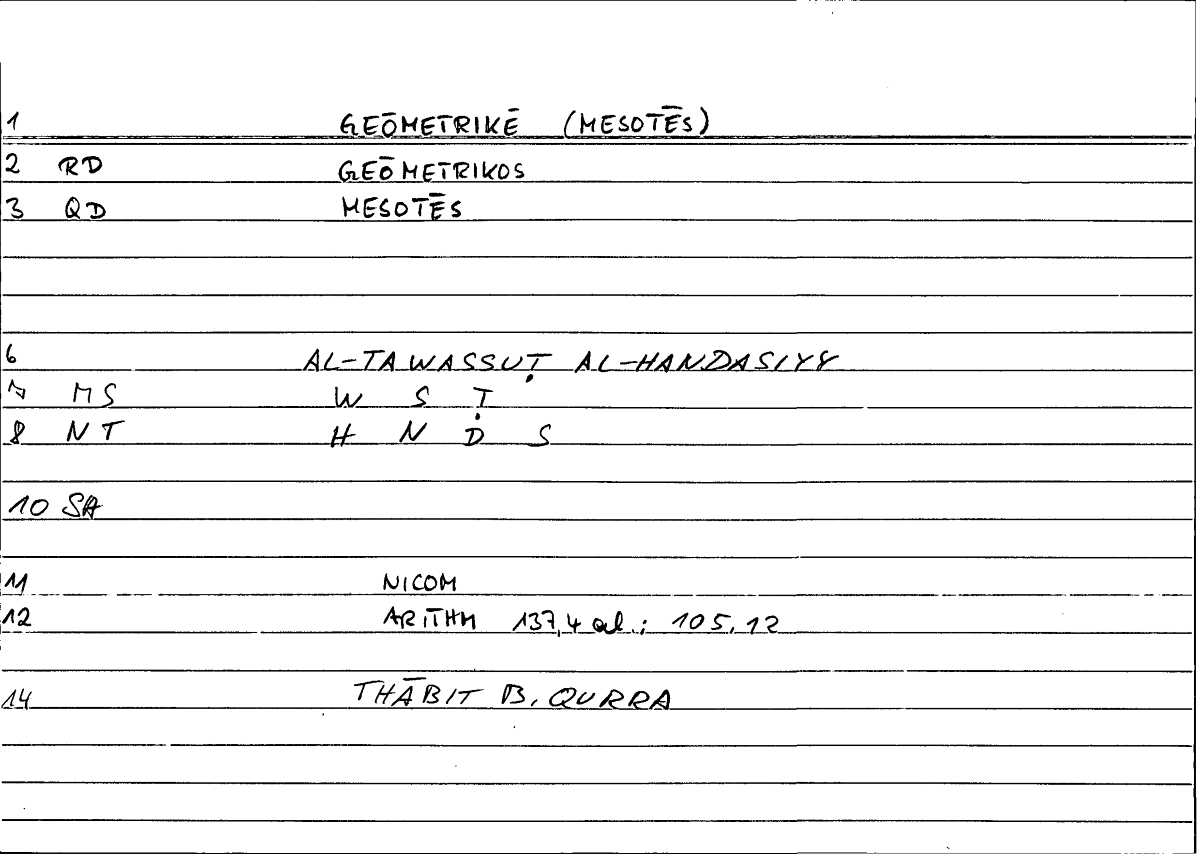 1 GEŌMETRIKĒ (MESOTĒS)
2 RD GEŌMETRIKOS
3 QD MESOTĒS
6 AL-TAWASSUṬ AL-HANDASIYY
7 MS W S Ṭ
8 NT H N D S
10 SA
11 NICOM
12 ARITHM 137,4 al.; 105,12
14 THĀBIT B. QURRA